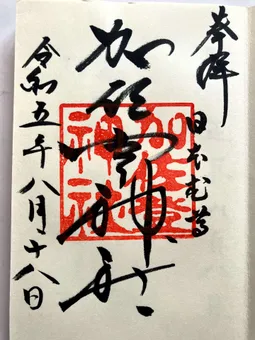 奉拝
日本武尊
加佐登神社
加佐登
神社
令和五年八月十八日